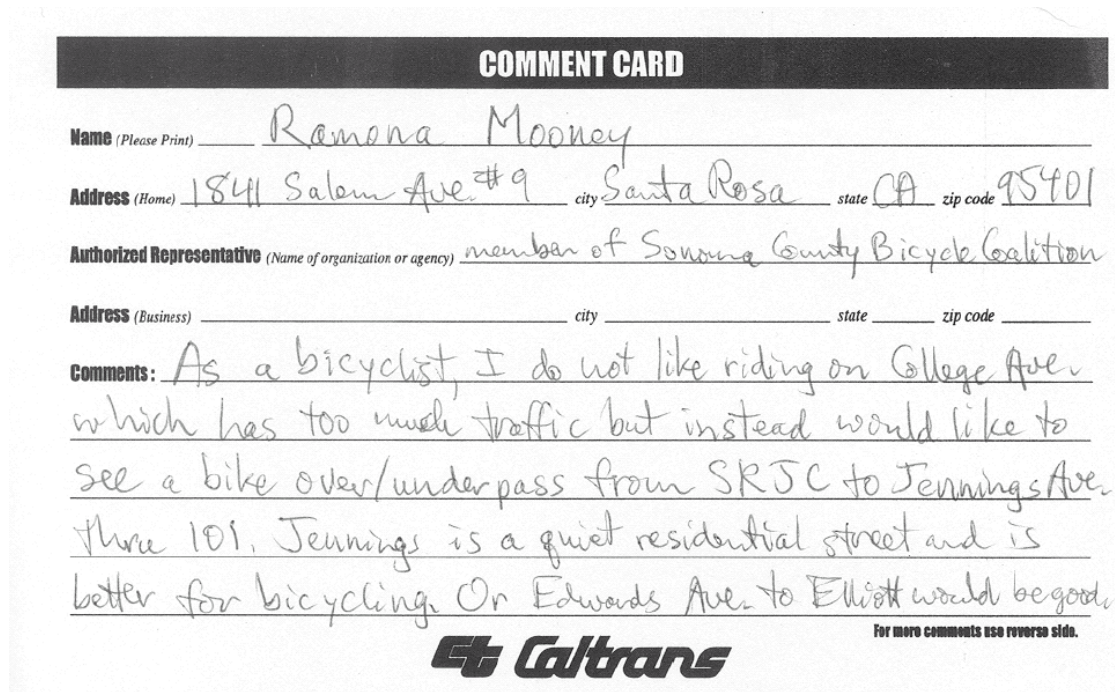 COMMENT CARD
Name (Please Print) Ramona Mooney
Address (Home) 1841 Salem Ave. #9 city Santa Rosa state CA zip code 95401
Authorized Representative (Name of organization or agency) member of Sonoma County Bicycle Coalition
Address (Business) city state zip code
Comments: As a bicyclist, I do not like riding on College Ave.
which has too much traffic but instead would like to
see a bike over/underpass from SRJC to Jennings Ave.
thru 101. Jennings is a quiet residential street and is
better for bicycling. Or Edwards Ave. to Elliott would be good.
For more comments use reverse side.
Ct Caltrans